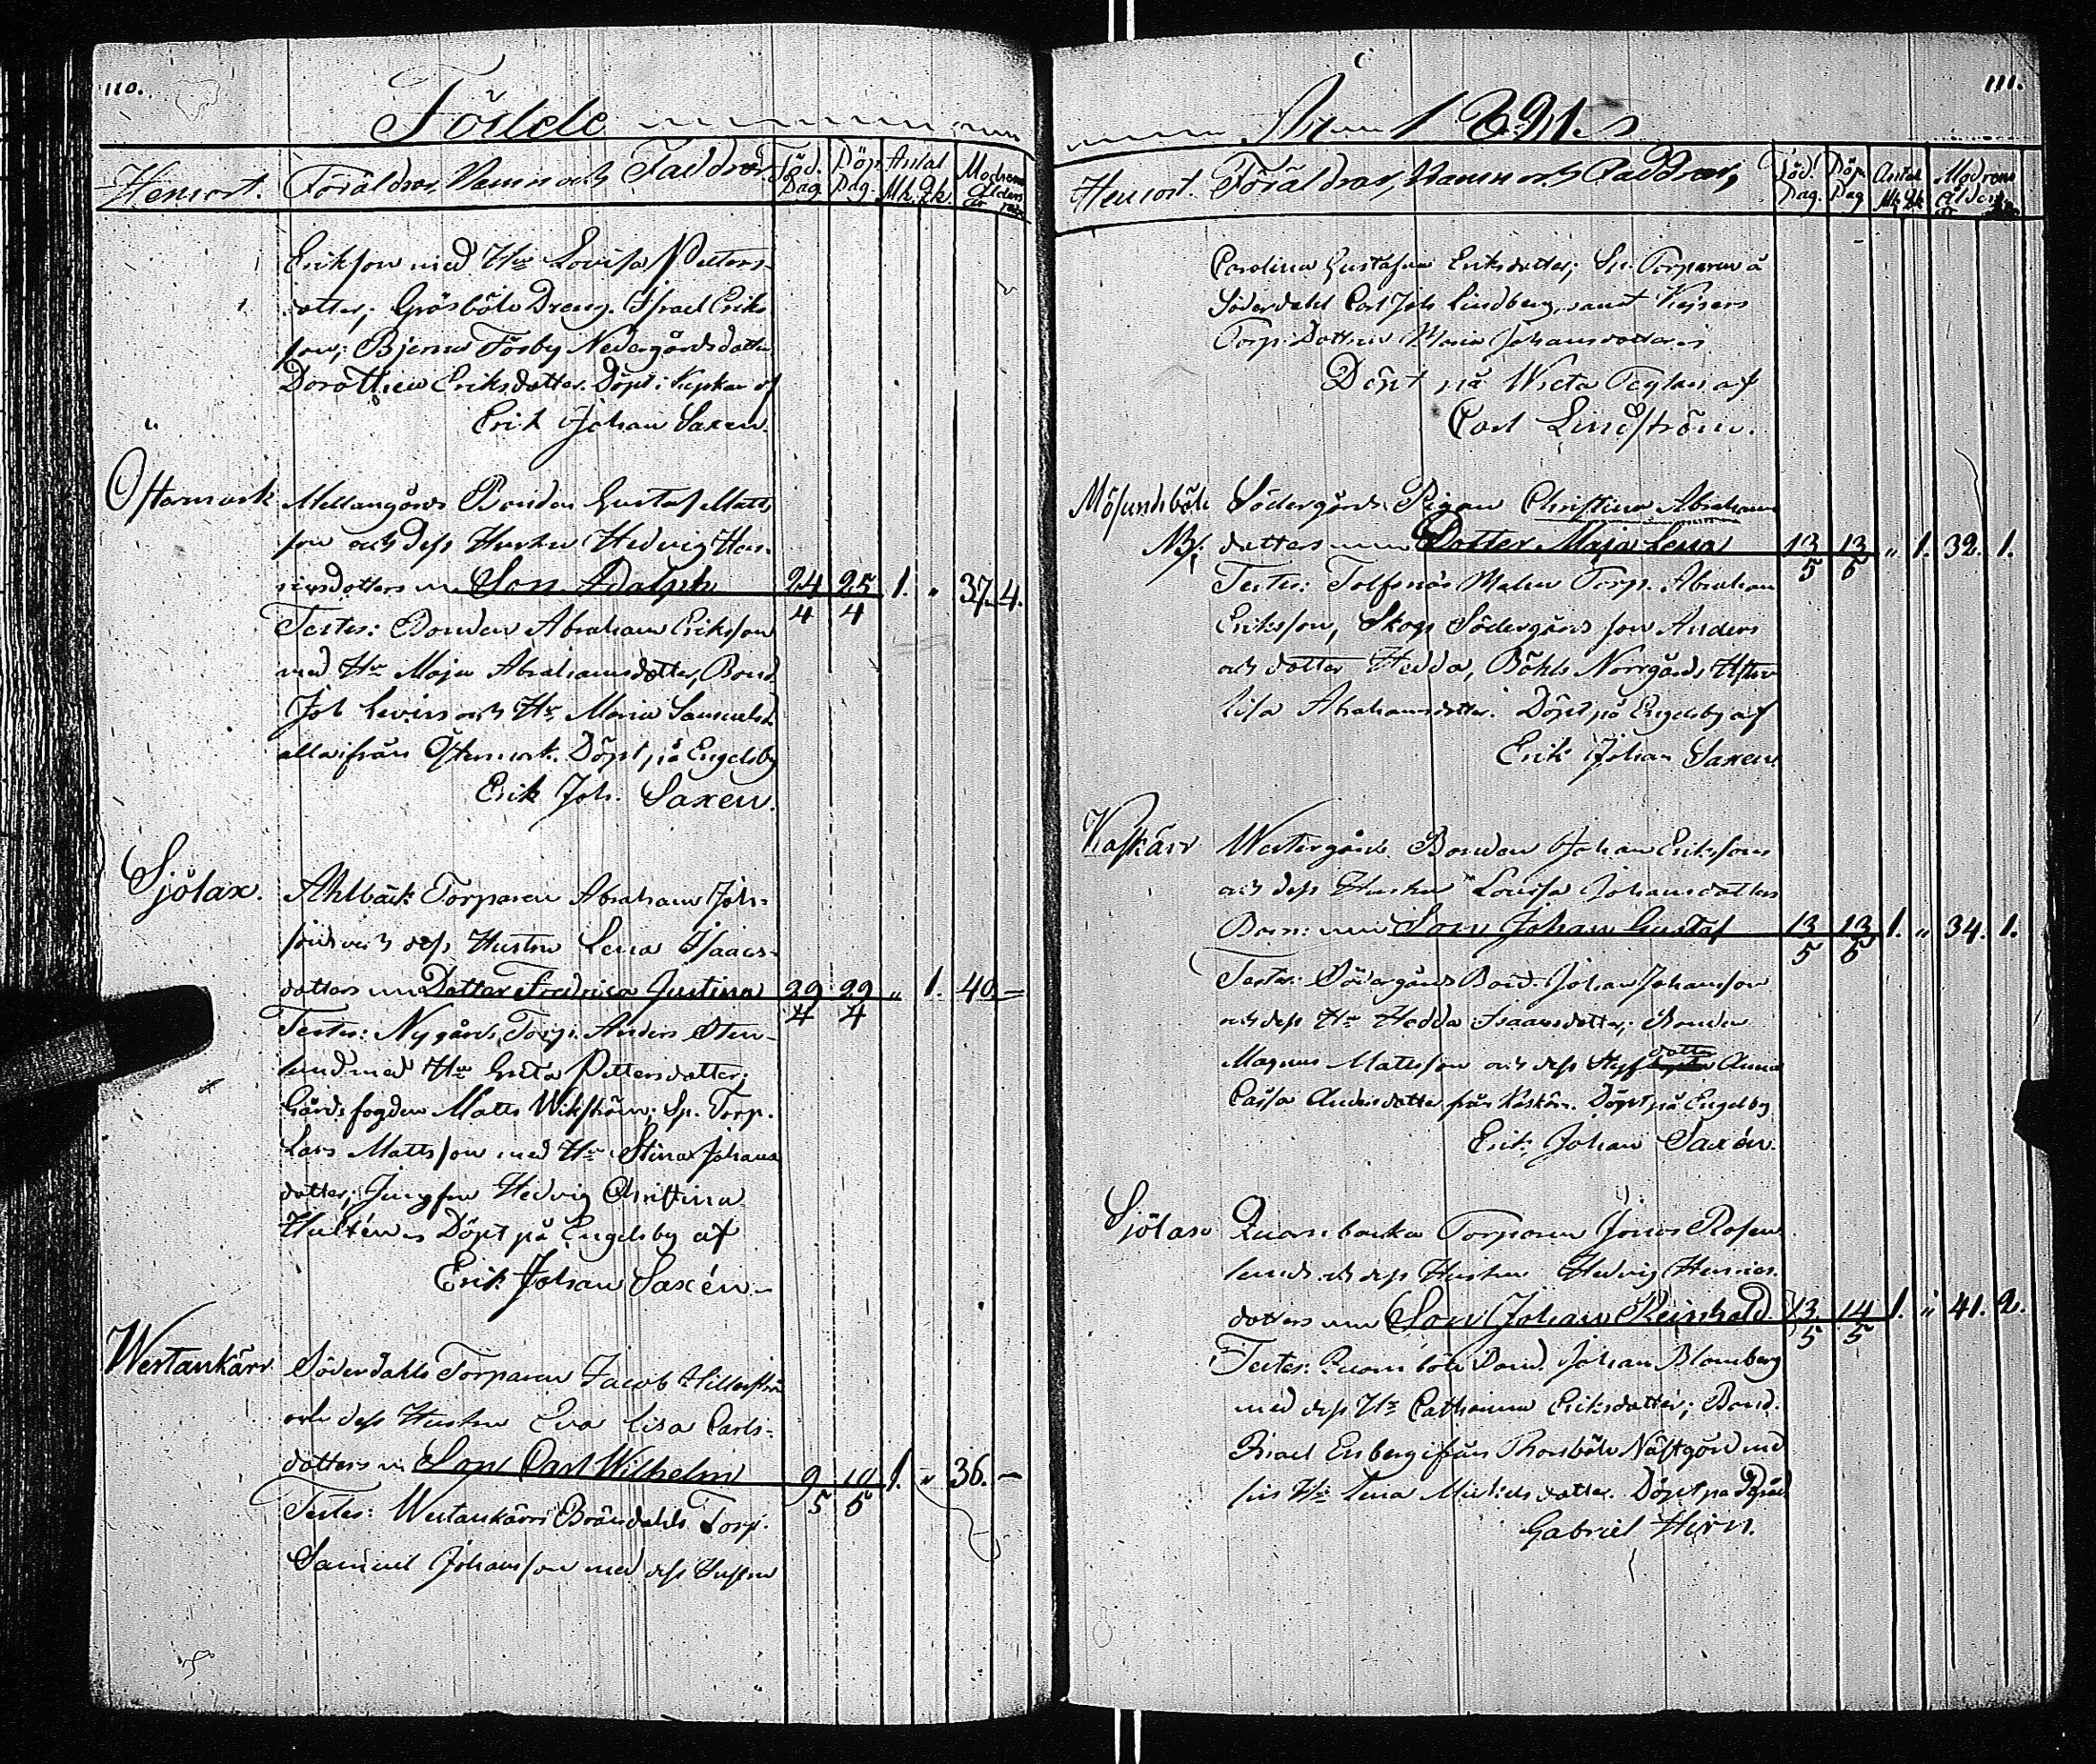 110.
Födde
Hemort. Föräldrar, Namn och Faddrar. Föd. Dag Döp. Dag. Antal Mk. Qk. Modrens Ålder
Erikson med Hu Lovisa Petters-
dotter; Gräsböle Dreng. Israel Eriks
son; Bjerno Tösby Nedergårds dotter
Dorothea Eriksdotter. Döpt i Kyrkan af
Erik Johan Saxen.
Östermark Mellangårds Bonden Gustaf Matts
son och dess Hustru Hedvig Hen-
ricsdotters Son Adolph 24/4 25/4 1. " 37. 4.
Testes: Bonden Abraham Eriksson
med Hu Maja Abrahamsdotter, Bond.
Joh Levin och Hu Maria Samuelsd.
alla ifrån Östermark. Döpt på Engelsby
Erik Joh. Saxen.
Sjölax. Ahlbäck Torparen Abraham Joh-
sons och dess Hustru Lena Isaacs-
dotters Dotter Fredrica Justina 29/4 29/4 " 1. 40 –
Testes: Nygårds Torp. Anders Sten-
lund med Hu Greta Pettersdotter;
Gårdsfogden Matts Wikström; Sp. Torp.
Lars Mattsson med Hu Stina Johans
dotter; Jungfru Hedvig Christina
Hultén Döpt på Engelsby af
Erik Johan Saxén
Westankärr Söderdahls Torparen Jacob Hillerström
och dess Hustru Eva Lisa Carls-
dotters Son Carl Wilhelm 9/5 10/5 1. " 36. –
Testes: Westankärrs Brändahls Torp.
Samuel Johansson med dess Hustru
111.
År 1821.
Hemort. Föräldrar, Namn och Faddrar, Föd. Dag. Döp. Dag Antal Mk Qk Modrens Ålder
Carolina Gustafva Eriksdotter; Sp. Torparen å
Söderdahl Carl Joh Lindberg, samt Kejsars
Torp. Dottren Maria Johansdotter
Döpt på Wreta Teglan af
Carl Lindström.
Mösundsböle Södergårds Pigan Christina Abrahams
NB: dotters Dotter Maja Lena 13/5 13/5 " 1. 32. 1.
Testes: Tolfsnäs Malm Torp. Abraham
Eriksson, Skogs Södergårds son Anders
och dotter Hedda, Böhle Norrgårds Hustru
Lisa Abrahamsdotter. Döpt på Engelsby af
Erik Johan Saxen
Kaskärr Westergårds Bonden Johan Eriksons
och dess Hustru Lovisa Johansdotters
Barn: Son Johan Gustaf 13/5 13/5 1. " 34. 1.
Testes: Södergårds Bond. Johan Johansson
och dess Hu Hedda Isaacsdotter; Bonden
Magnus Mattsson och dess Styfdotter Anna
Cajsa Andersdotter från Kaskärr. Döpt på Engelsby
Erik Johan Saxén.
Sjölax Quarnbacka Torparen Jonas Rosen
lunds och dess Hustru Hedvig Henrics-
dotters Son Johan Reinhold. 13/5 14/5 1. " 41. 2.
Testes: Quarnböle Bond. Johan Blomberg
med dess Hu Catharina Eriksdotter; Bond.
Israel Enberg ifrån Nästgård med
sin Hu Lena Michelsdotter. Döpt på
Gabriel Hirn.